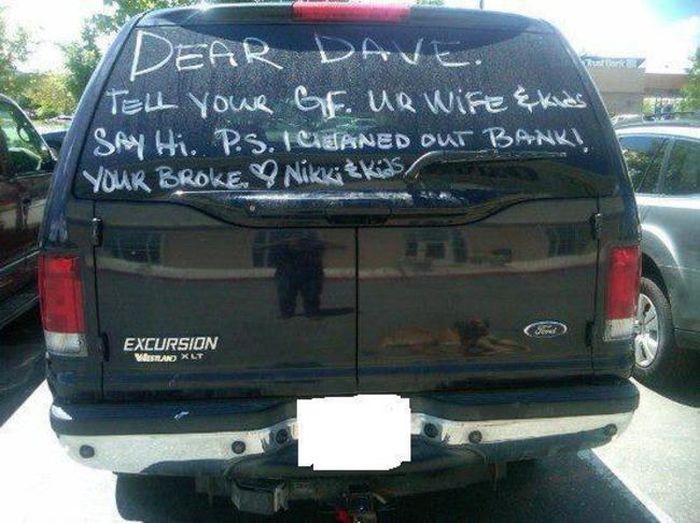 DEAR DAVE.
TELL YOUR GF. UR WIFE & KIDS
SAY Hi. P.S. I CLEANED OUT BANK!
YOUR BROKE. ♡ Nikki & Kids
EXCURSION
WESTLAND XLT
Ford